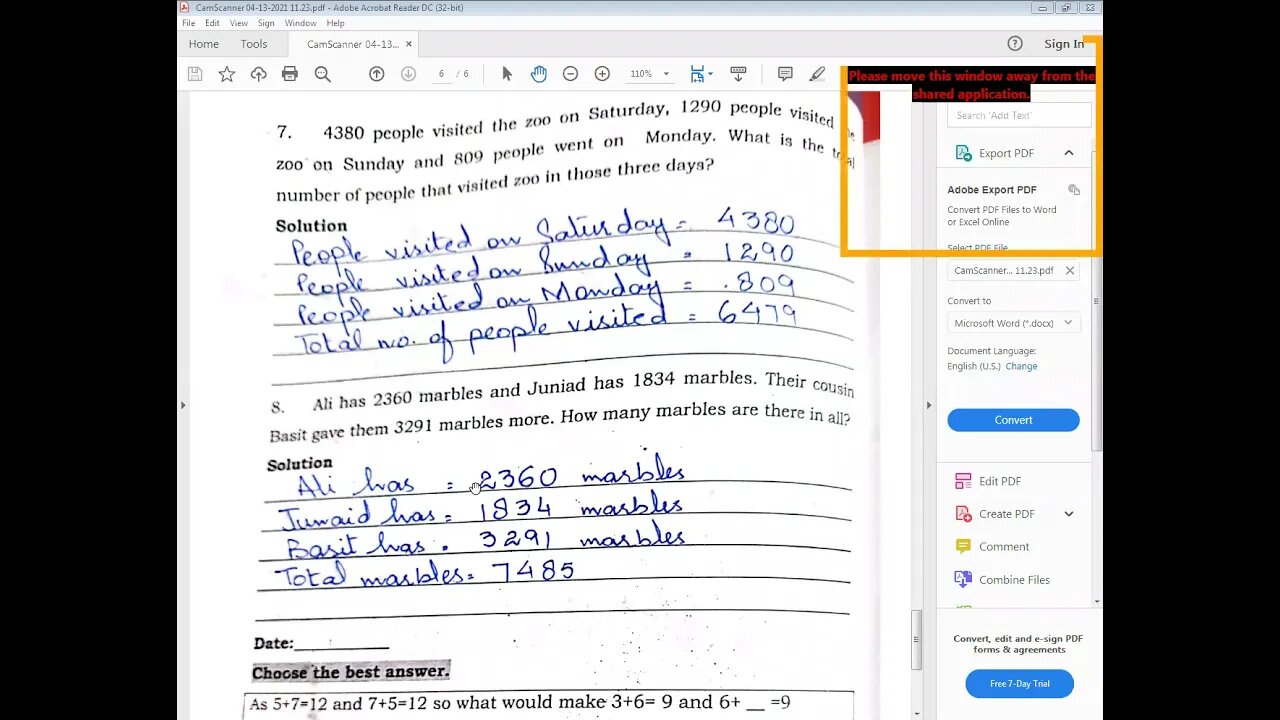 CamScanner 04-13-2021 11.23.pdf - Adobe Acrobat Reader DC (32-bit)
File Edit View Sign Window Help
Home Tools CamScanner 04-13... × Sign In
6 / 6 110%
Please move this window away from the
shared application.
Search 'Add Text'
Export PDF
Adobe Export PDF
Convert PDF Files to Word
or Excel Online
Select PDF File
CamScanner... 11.23.pdf ×
Convert to
Microsoft Word (*.docx)
Document Language:
English (U.S.) Change
Convert
Edit PDF
Create PDF
Comment
Combine Files
Convert, edit and e-sign PDF
forms & agreements
Free 7-Day Trial
7. 4380 people visited the zoo on Saturday, 1290 people visited
zoo on Sunday and 809 people went on Monday. What is the total
number of people that visited zoo in those three days?
Solution
People visited on Saturday = 4380
People visited on Sunday = 1290
People visited on Monday = .809
Total no. of people visited = 6479
8. Ali has 2360 marbles and Juniad has 1834 marbles. Their cousin
Basit gave them 3291 marbles more. How many marbles are there in all?
Solution
Ali has = 2360 marbles
Junaid has = 1834 marbles
Basit has = 3291 marbles
Total marbles = 7485
Date:__________
Choose the best answer.
As 5+7=12 and 7+5=12 so what would make 3+6= 9 and 6+ __ =9